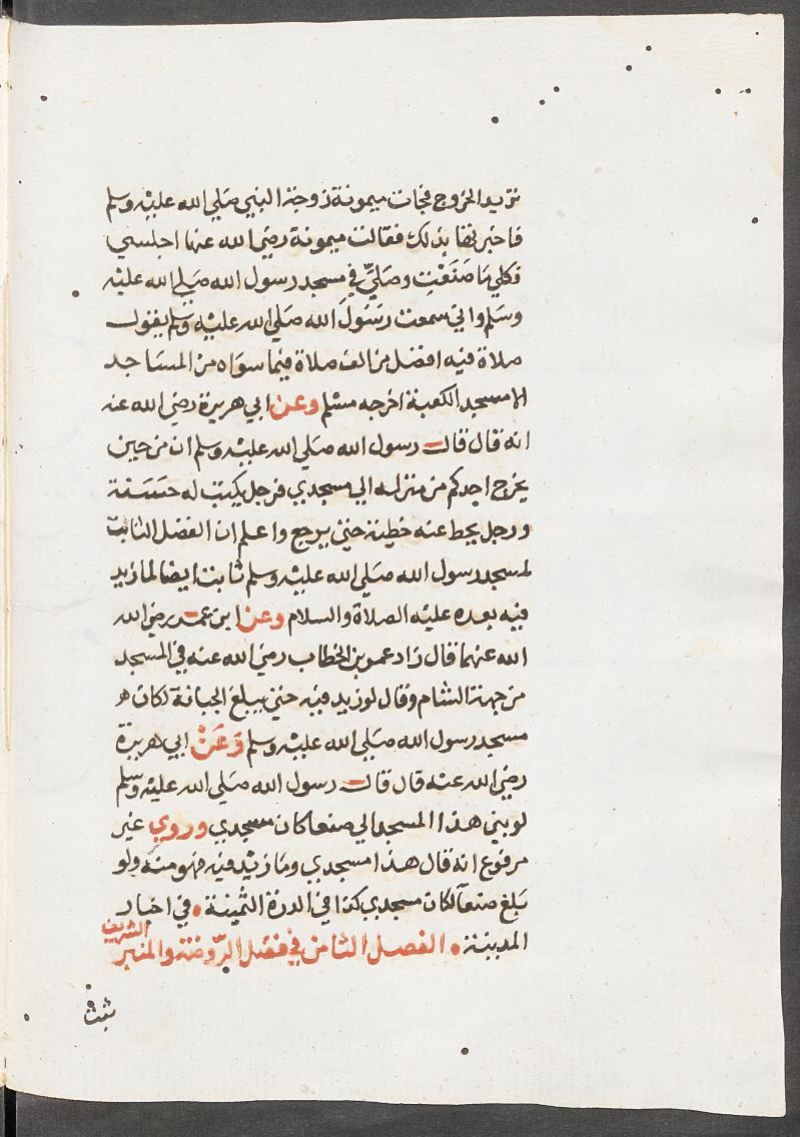 تريد الخروج فجات ميمونة زوجة النبي صلي الله عليه وسلم
فاخبرتها بذلك فقالت ميمونة رضي الله عنها اجلسي
فكلي ما صَنَعْتِ وصَلّي في مسجد رسول الله صلي الله عليه
وسلم واني سمعت رسُولَ الله صلي الله عليه وسلم يقول
صلاة فيه افضل من الف صلاة فيما سواه من المساجد
الا مسجد الكعبة اخرجه مسلم وعن ابي هريرة رضي الله عنه
انه قال قال رسول الله صلي الله عليه وسلم ان من حين
يخرج احدكم من منزله الي مسجدي فرجل يكتب له حسنة
ورجل يحط عنه خطية حتي يرجع واعلم ان الفضل الثابت
لمسجد رسول الله صلي الله عليه وسلم ثابت ايضا لما زيد
فيه بعده عليه الصلاة والسلام وعن ابن عمر رضي الله
الله عنهما قال زاد عمر بن الخطاب رضي الله عنه في المسجد
من جهة الشام وقال لو زيد فيه حتي يبلغ الجبانة لكان هو
مسجد رسول الله صلي الله عليه وسلم وَعَنْ ابي هريرة
رضي الله عنه قال قال رسول الله صلي الله عليه وسلم
لو بني هذا المسجد الي صنعا كان مسجدي وروي غير
مرفوع انه قال هذا مسجدي وما زيد فيه فهو منه ولو
بلغ صنعآ لكان مسجدي كذا في الدرة الثمينة • في اخبار
المدينة • الفصل الثامن في فضل الروضة والمنبر الشريف